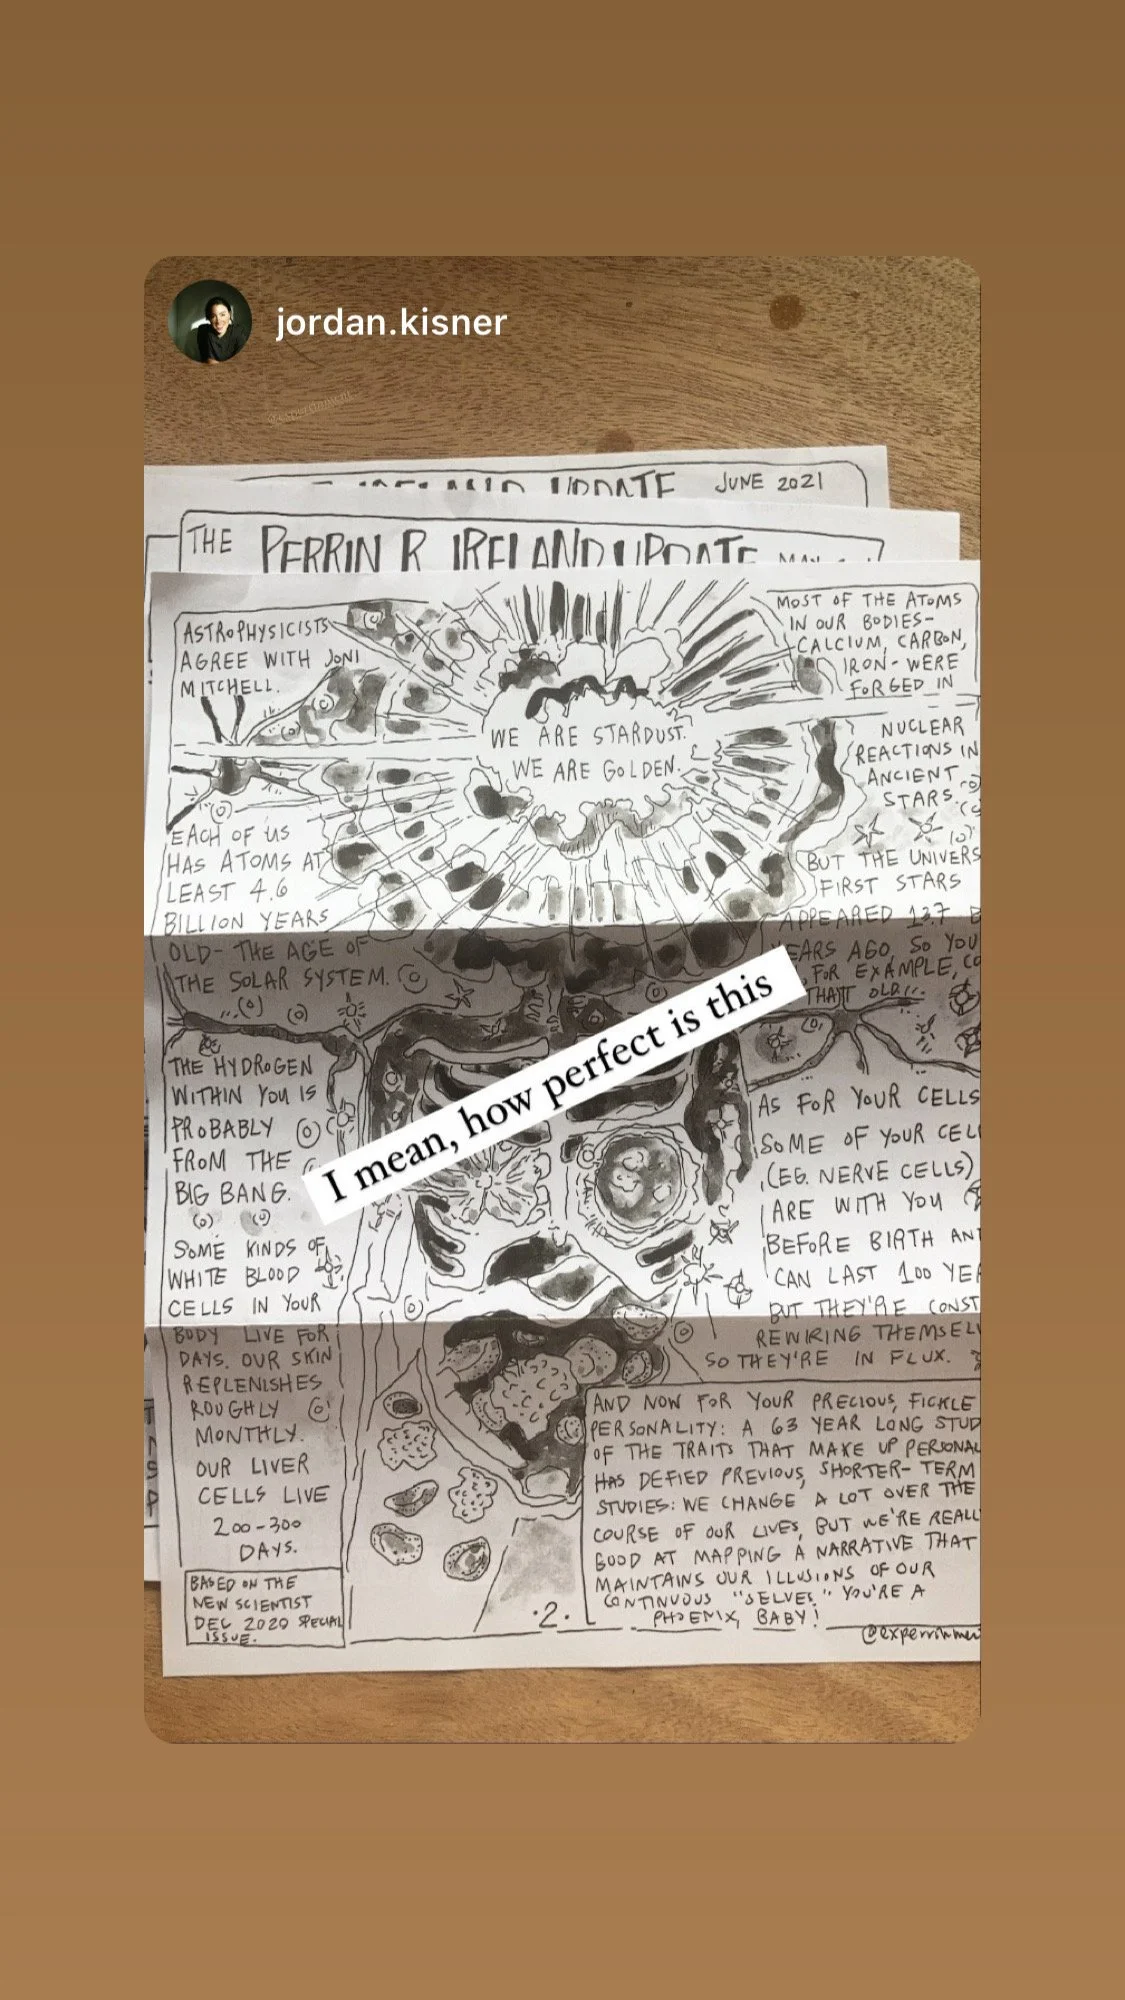 jordan.kisner
JUNE 2021
THE PERRIN R IRELAND UPDATE
ASTROPHYSICISTS
AGREE WITH JONI
MITCHELL.
WE ARE STARDUST.
WE ARE GOLDEN.
MOST OF THE ATOMS
IN OUR BODIES-
CALCIUM, CARBON,
IRON - WERE
FORGED IN
NUCLEAR
REACTIONS IN
ANCIENT
STARS.
EACH OF US
HAS ATOMS AT
LEAST 4.6
BILLION YEARS
OLD - THE AGE OF
THE SOLAR SYSTEM.
BUT THE UNIVERS
FIRST STARS
APPEARED 13.7 B
YEARS AGO, SO YOU
, FOR EXAMPLE, CO
THAT OLD...
I mean, how perfect is this
THE HYDROGEN
WITHIN YOU IS
PROBABLY
FROM THE
BIG BANG.
SOME KINDS OF
WHITE BLOOD
CELLS IN YOUR
BODY LIVE FOR
DAYS. OUR SKIN
REPLENISHES
ROUGHLY
MONTHLY.
OUR LIVER
CELLS LIVE
200-300
DAYS.
AS FOR YOUR CELLS
SOME OF YOUR CEL
(EG. NERVE CELLS)
ARE WITH YOU
BEFORE BIRTH AN
CAN LAST 100 YEA
BUT THEY'RE CONST
REWIRING THEMSEL
SO THEY'RE IN FLUX.
AND NOW FOR YOUR PRECIOUS, FICKLE
PERSONALITY: A 63 YEAR LONG STUD
OF THE TRAITS THAT MAKE UP PERSONAL
HAS DEFIED PREVIOUS, SHORTER-TERM
STUDIES: WE CHANGE A LOT OVER THE
COURSE OF OUR LIVES, BUT WE'RE REALL
GOOD AT MAPPING A NARRATIVE THAT
MAINTAINS OUR ILLUSIONS OF OUR
CONTINUOUS "SELVES." YOU'RE A
PHOENIX, BABY!
BASED ON THE
NEW SCIENTIST
DEC 2020 SPECIAL
ISSUE.
·2.
@experrinmen